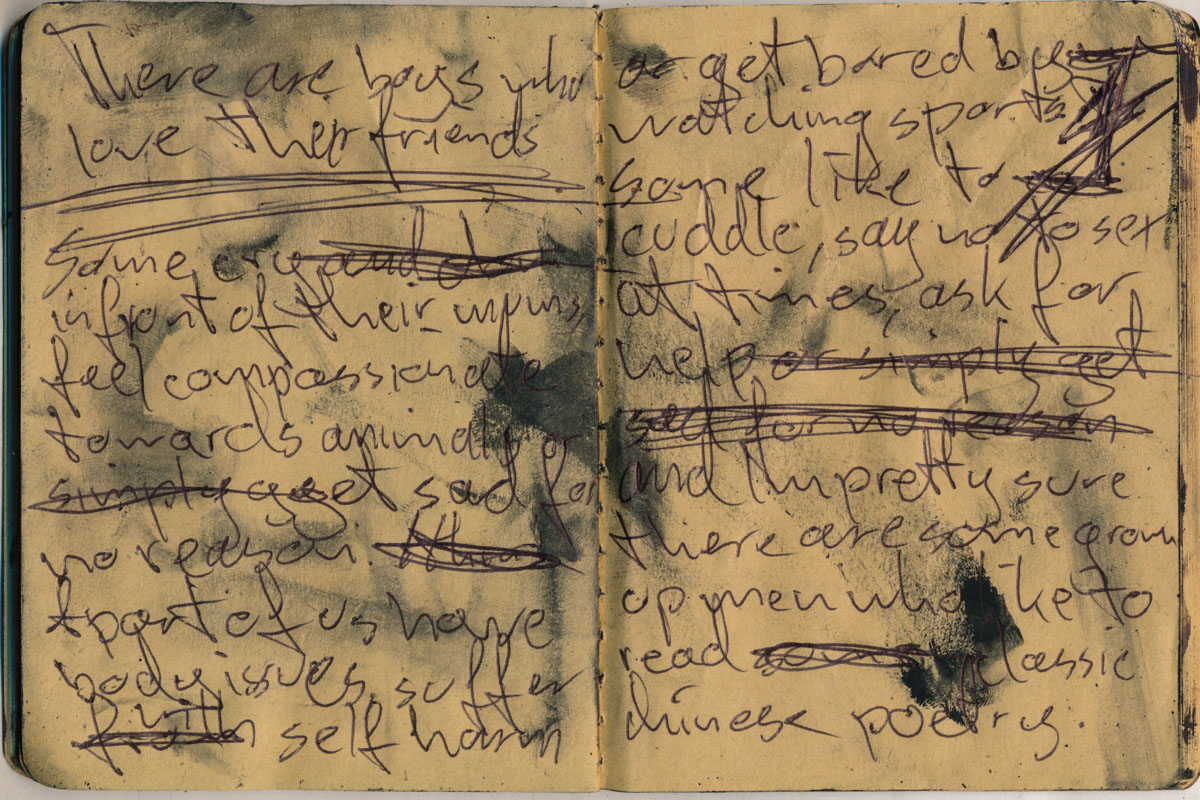 There are boys who
love their friends
Some cry and do
infront of their mums,
feel compassionate
towards animals or
simply get sad for
no reason.
A part of us have
body issues, suffer
from self harm
or get bored by
watching sports
some like to
cuddle, say no to sex
at times, ask for
help or simply get
sad for no reason
and Im pretty sure
there are some grown
up men who like to
read some classic
chinese poetry.